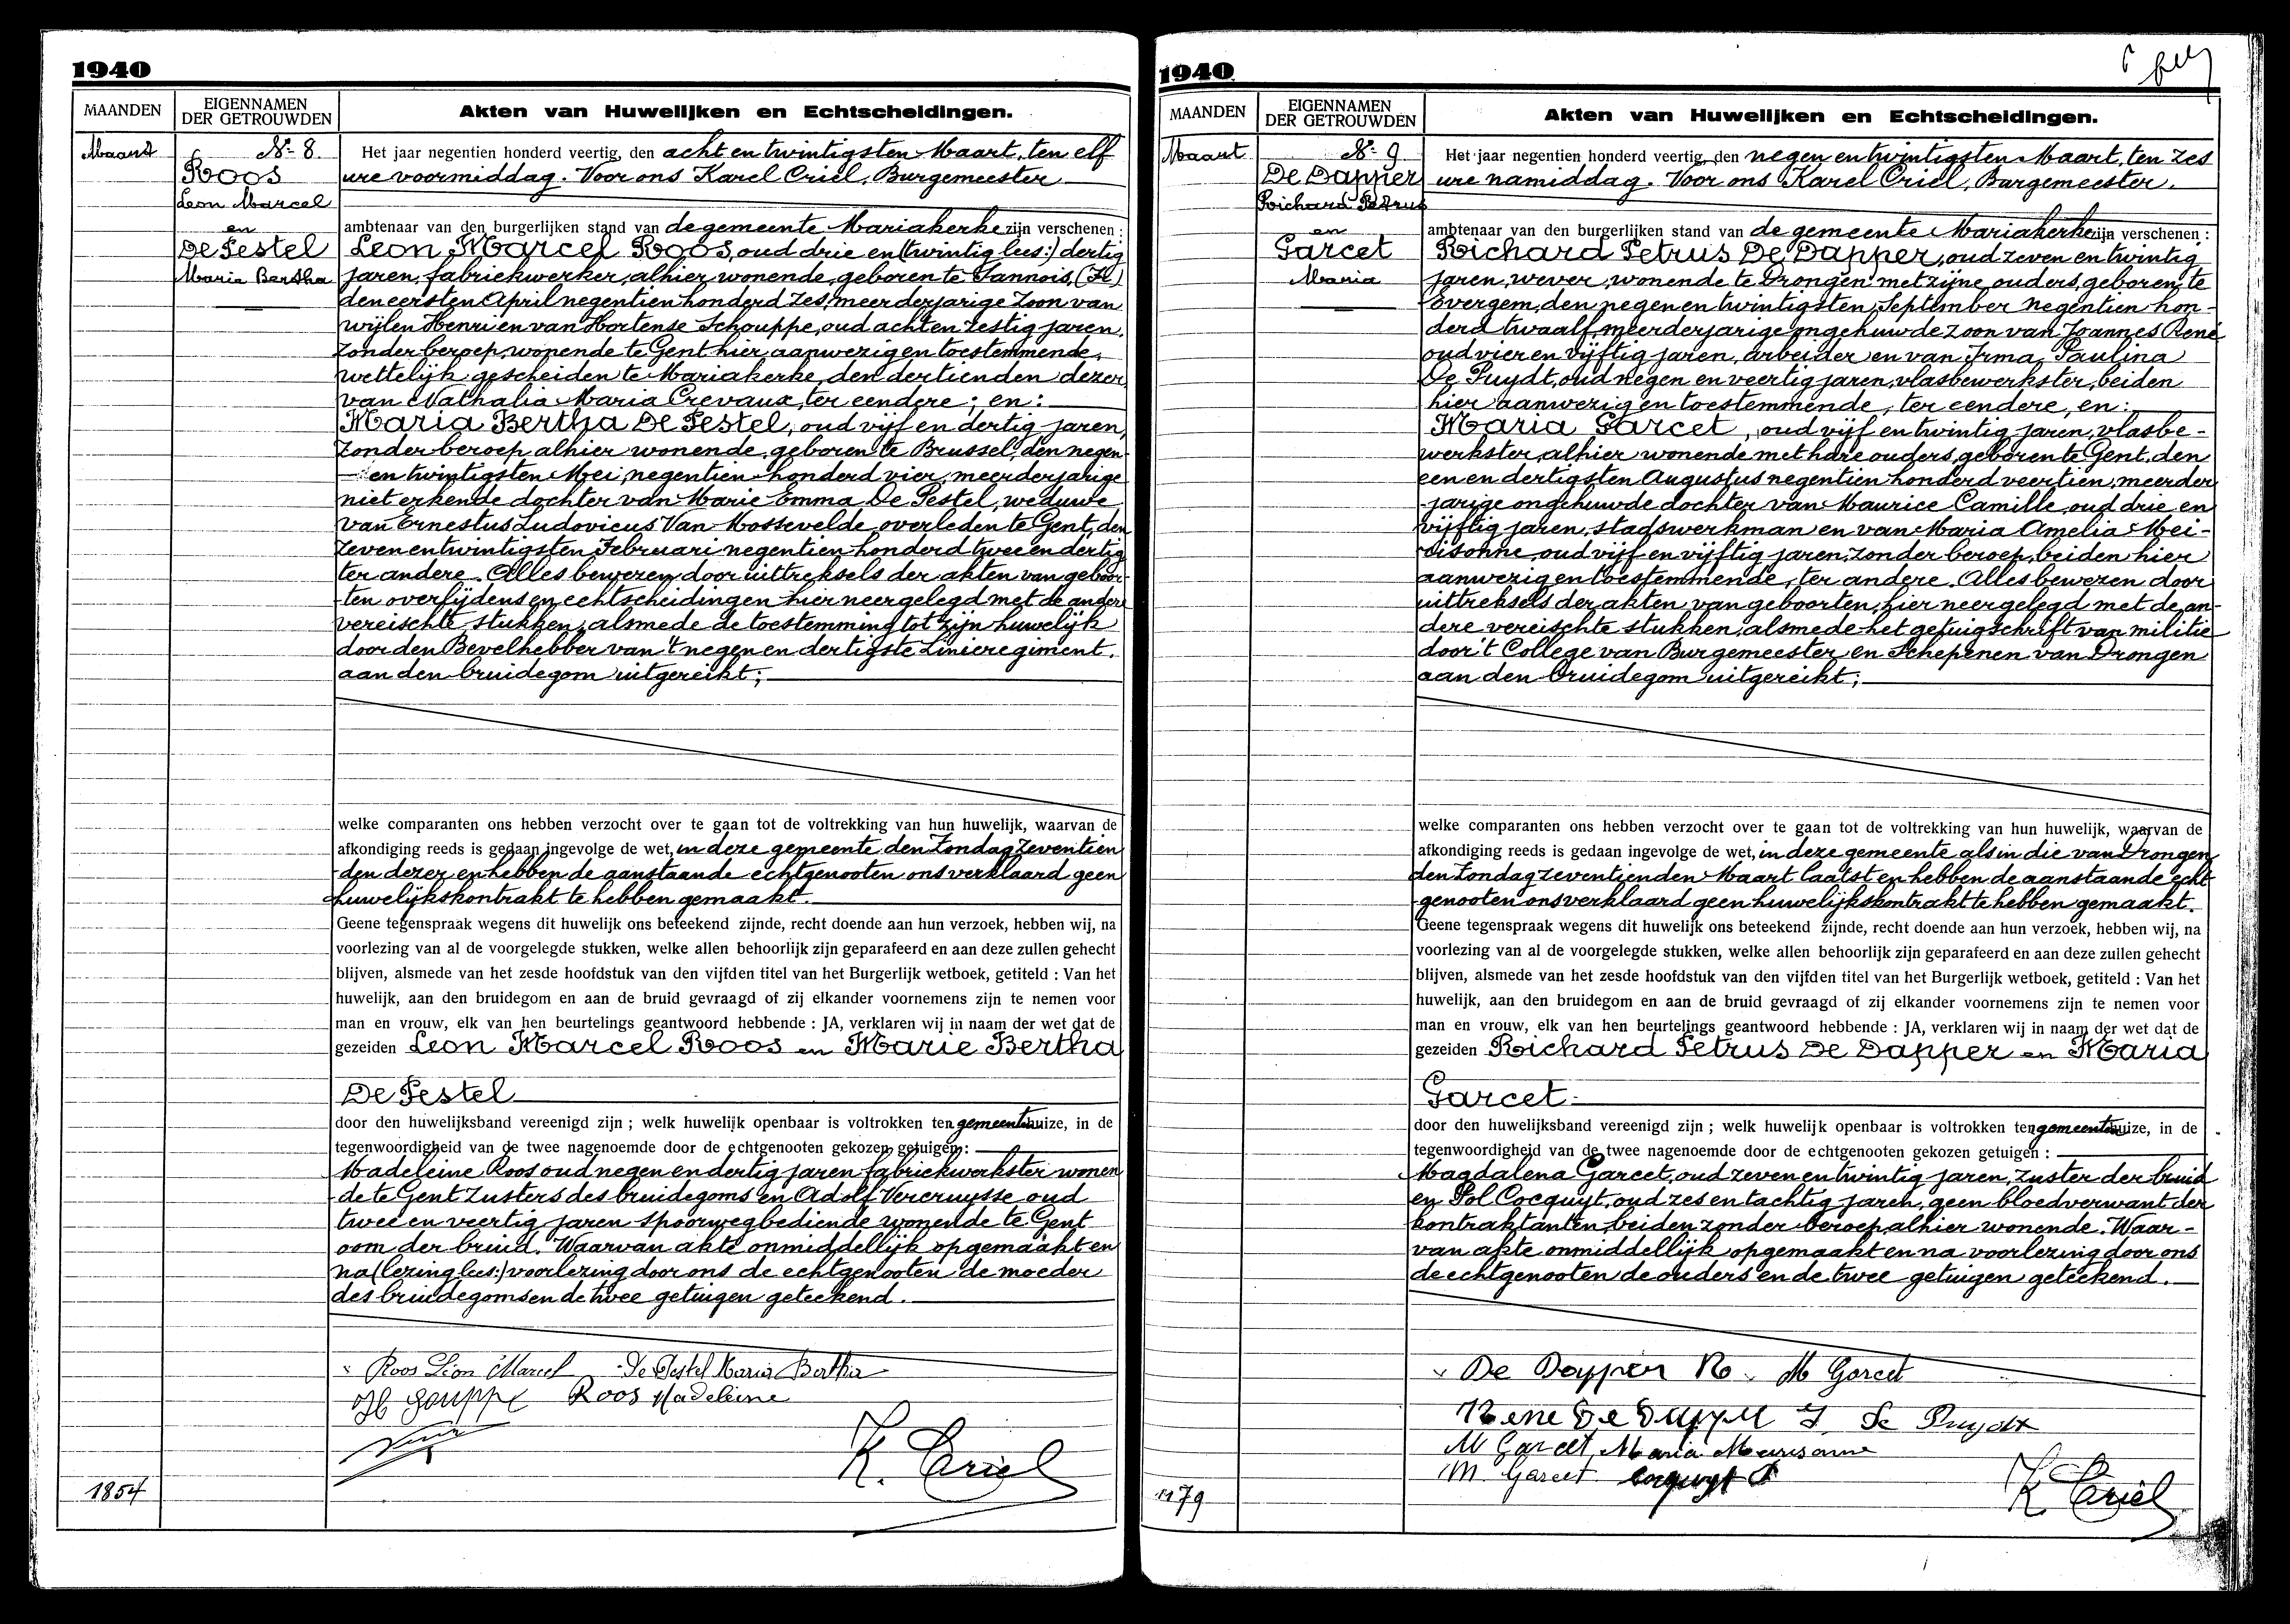 1940
MAANDEN
EIGENNAMEN
DER GETROUWDEN
Akten van Huwelijken en Echtscheidingen.
Maart
No 8.
Roos
Leon Marcel
en
De Pestel
Maria Bertha
Het jaar negentien honderd veertig, den acht en twintigsten Maart, ten elf
ure voormiddag. Voor ons Karel Criel, Burgemeester
ambtenaar van den burgerlijken stand van de gemeente Mariakerke zijn verschenen :
Leon Marcel Roos, oud drie en (twintig lees:) dertig
jaren, fabriekwerker, alhier wonende, geboren te Tannois, (F.)
den eersten April negentien honderd zes, meerderjarige zoon van
wijlen Henri en van Hortense Schouppe, oud acht en zestig jaren,
zonder beroep, wonende te Gent hier aanwezig en toestemmende,
wettelijk gescheiden te Mariakerke, den dertienden dezer
van Nathalia Maria Crevaux, ter eendere ; en :
Maria Bertha De Pestel, oud vijf en dertig jaren,
zonder beroep alhier wonende, geboren te Brussel, den negen
en twintigsten Mei, negentien honderd vier, meerderjarige
niet erkende dochter van Marie Emma De Pestel, weduwe
van Ernestus Ludovicus Van Mossevelde, overleden te Gent, den
zeven en twintigsten Februari negentien honderd twee en dertig
ter andere. Alles bewezen door uittreksels der akten van geboor-
ten overlijdens en echtscheidingen hier neergelegd met de andere
vereischte stukken, alsmede de toestemming tot zijn huwelijk
door den Bevelhebber van 't negen en dertigste Linieregiment.
aan den bruidegom uitgereikt ;
welke comparanten ons hebben verzocht over te gaan tot de voltrekking van hun huwelijk, waarvan de
afkondiging reeds is gedaan ingevolge de wet, in deze gemeente den Zondag zeventien
den dezer en hebben de aanstaande echtgenooten ons verklaard geen
huwelijkskontrakt te hebben gemaakt.
Geene tegenspraak wegens dit huwelijk ons beteekend zijnde, recht doende aan hun verzoek, hebben wij, na
voorlezing van al de voorgelegde stukken, welke allen behoorlijk zijn geparafeerd en aan deze zullen gehecht
blijven, alsmede van het zesde hoofdstuk van den vijfden titel van het Burgerlijk wetboek, getiteld : Van het
huwelijk, aan den bruidegom en aan de bruid gevraagd of zij elkander voornemens zijn te nemen voor
man en vrouw, elk van hen beurtelings geantwoord hebbende : JA, verklaren wij in naam der wet dat de
gezeiden Leon Marcel Roos en Marie Bertha
De Pestel
door den huwelijksband vereenigd zijn ; welk huwelijk openbaar is voltrokken ten gemeentehuize, in de
tegenwoordigheid van de twee nagenoemde door de echtgenooten gekozen getuigen :
Madeleine Roos oud negen en dertig jaren fabriekwerkster wonen
de te Gent zusters des bruidegoms en Adolf Vercruysse oud
twee en veertig jaren spoorwegbediende wonende te Gent
oom der bruid. Waarvan akte onmiddellijk opgemaakt en
na (lezing lees:) voorlezing door ons de echtgenooten de moeder
des bruidegoms en de twee getuigen geteekend.
Roos Léon Marcel De Pestel Maria Bertha
Roos Madeleine
K. Criel
1854
1940
MAANDEN
EIGENNAMEN
DER GETROUWDEN
Akten van Huwelijken en Echtscheidingen.
Maart
No 9
De Dapper
Richard Petrus
en
Garcet
Maria
Het jaar negentien honderd veertig, den negen en twintigsten Maart, ten zes
ure namiddag. Voor ons Karel Criel, Burgemeester.
ambtenaar van den burgerlijken stand van de gemeente Mariakerke zijn verschenen :
Richard Petrus De Dapper, oud zeven en twintig
jaren, wever, wonende te Drongen met zijne ouders, geboren te
Lovergem, den negen en twintigsten September negentien hon-
derd twaalf, meerderjarige ongehuwde zoon van Joannes René
oud vier en vijftig jaren, arbeider en van Irma Paulina
De Puydt, oud negen en veertig jaren, vlasbewerkster, beiden
hier aanwezig en toestemmende, ter eendere, en :
Maria Garcet, oud vijf en twintig jaren, vlasbe-
werkster, alhier wonende met hare ouders, geboren te Gent, den
een en dertigsten Augustus negentien honderd veertien, meerder
jarige ongehuwde dochter van Maurice Camille, oud drie en
vijftig jaren, stadswerkman en van Maria Amelia Mei-
risonne, oud vijf en vijftig jaren, zonder beroep, beiden hier
aanwezig en toestemmende, ter andere. Alles bewezen door
uittreksels der akten van geboorten, hier neergelegd met de an-
dere vereischte stukken, alsmede het getuigschrift van militie
door 't College van Burgemeester en Schepenen van Drongen
aan den bruidegom uitgereikt ;
welke comparanten ons hebben verzocht over te gaan tot de voltrekking van hun huwelijk, waarvan de
afkondiging reeds is gedaan ingevolge de wet, in deze gemeente als in die van Drongen
den Zondag zeventienden Maart laatst en hebben de aanstaande echt
genooten ons verklaard geen huwelijkskontrakt te hebben gemaakt.
Geene tegenspraak wegens dit huwelijk ons beteekend zijnde, recht doende aan hun verzoek, hebben wij, na
voorlezing van al de voorgelegde stukken, welke allen behoorlijk zijn geparafeerd en aan deze zullen gehecht
blijven, alsmede van het zesde hoofdstuk van den vijfden titel van het Burgerlijk wetboek, getiteld : Van het
huwelijk, aan den bruidegom en aan de bruid gevraagd of zij elkander voornemens zijn te nemen voor
man en vrouw, elk van hen beurtelings geantwoord hebbende : JA, verklaren wij in naam der wet dat de
gezeiden Richard Petrus De Dapper en Maria
Garcet.
door den huwelijksband vereenigd zijn ; welk huwelijk openbaar is voltrokken ten gemeentehuize, in de
tegenwoordigheid van de twee nagenoemde door de echtgenooten gekozen getuigen :
Magdalena Garcet, oud zeven en twintig jaren, zuster der bruid
en Pol Cocquyt, oud zes en tachtig jaren, geen bloedverwant der
kontraktanten, beiden zonder beroep, alhier wonende. Waar-
van akte onmiddellijk opgemaakt en na voorlezing door ons
de echtgenooten de ouders en de twee getuigen geteekend.
De Dapper R. M Garcet
Rene De Dapper I De Puydt
M Garcet Maria Meirisonne
M. Garcet Cocquyt P
K Criel
1179